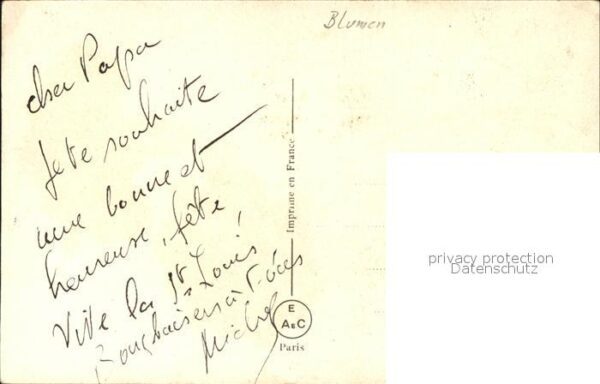 Blumen
cher Papa
je te souhaite
une bonne et
heureuse fête
Vive la St Louis!
Bons baisers à t.
Michel
Imprimé en France
E
A&C
Paris
privacy protection
Datenschutz